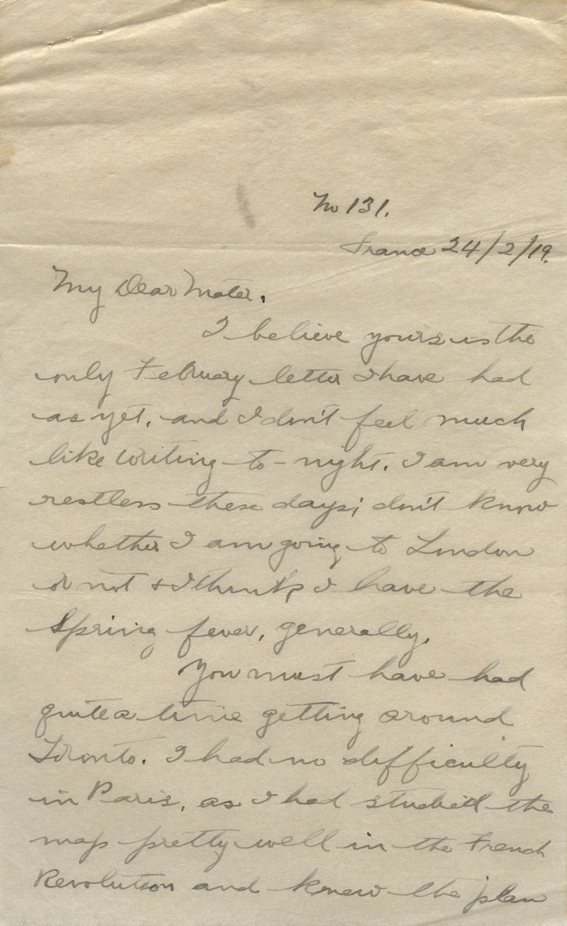 No 131.
France 24/2/19.
My Dear Mater.
I believe yours is the
only February letter I have had
as yet, and I don't feel much
like writing to-night. I am very
restless these days; don't know
whether I am going to London
or not & I think I have the
Spring fever, generally.
You must have had
quite a time getting around
Toronto. I had no difficulty
in Paris, as I had studied the
map pretty well in the French
Revolution and knew the plan